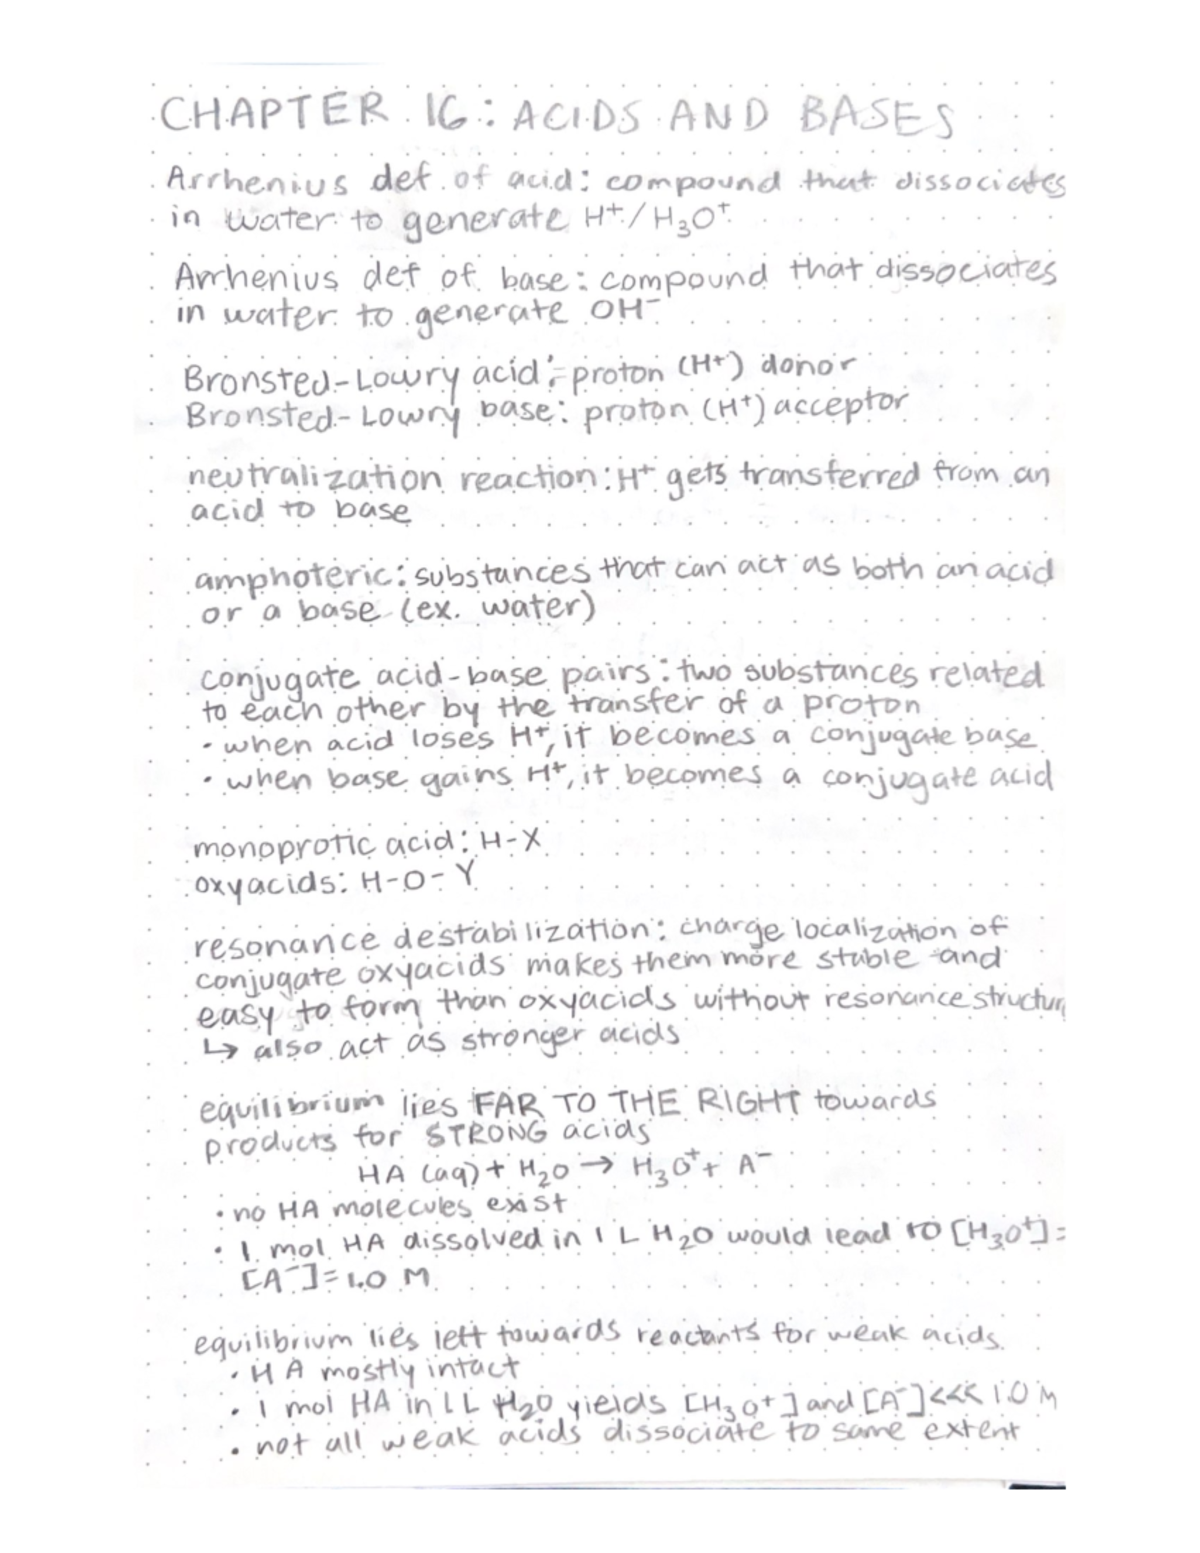 CHAPTER 16: ACIDS AND BASES
Arrhenius def. of acid: compound that dissociates
in water to generate H⁺/H₃O⁺
Arrhenius def of base: compound that dissociates
in water to generate OH⁻
Bronsted-Lowry acid: proton (H⁺) donor
Bronsted-Lowry base: proton (H⁺) acceptor
neutralization reaction: H⁺ gets transferred from an
acid to base
amphoteric: substances that can act as both an acid
or a base (ex. water)
conjugate acid-base pairs: two substances related
to each other by the transfer of a proton
• when acid loses H⁺, it becomes a conjugate base
• when base gains H⁺, it becomes a conjugate acid
monoprotic acid: H-X
oxyacids: H-O-Y
resonance destabilization: charge localization of
conjugate oxyacids makes them more stable and
easy to form than oxyacids without resonance structur
↳ also act as stronger acids
equilibrium lies FAR TO THE RIGHT towards
products for STRONG acids
HA (aq) + H₂O → H₃O⁺ + A⁻
• no HA molecules exist
• 1 mol HA dissolved in 1 L H₂O would lead to [H₃O⁺] =
[A⁻] = 1.0 M
equilibrium lies left towards reactants for weak acids
• HA mostly intact
• 1 mol HA in 1 L H₂O yields [H₃O⁺] and [A⁻] <<< 1.0 M
• not all weak acids dissociate to same extent